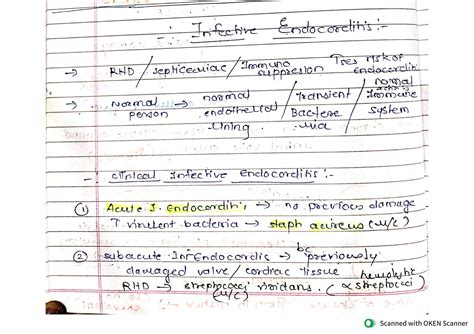 -: Infective Endocarditis:-
→ RHD / septicemiac / Immuno suppression ↑ses risk of endocarditis
→ Normal person → normal endothelial lining / Transient Bactere mia / normal Immune system
-: clinical Infective Endocarditis :-
① Acute I. Endocarditis → no previous damage
↑ virulent bacteria → staph aureus (m/c)
② subacute Inf Endocardic → bc previously
damaged valve / cardiac tissue
RHD → streptococci viridans. (α hemolytic streptococci)
(m/c)
Scanned with OKEN Scanner